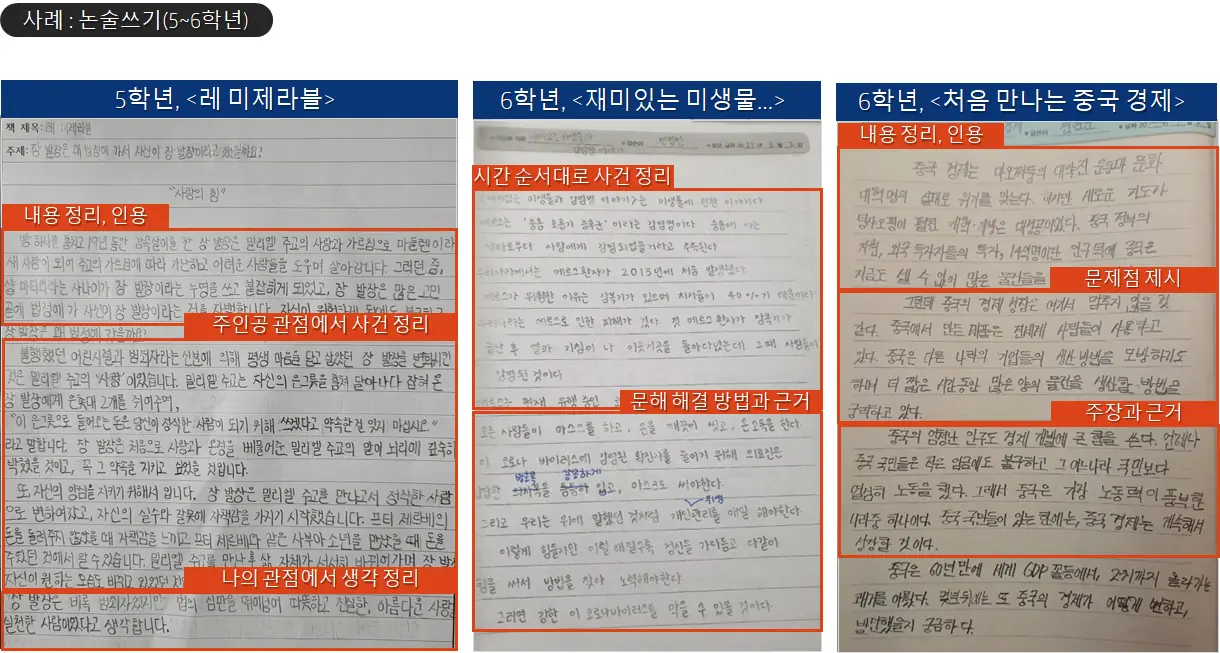 사례 : 논술쓰기(5~6학년)
5학년, <레 미제라블>
책 제목: 레 미제라블
주제: 장 발장은 왜 법정에 가서 자신이 장 발장이라고 했을까요?
"사랑의 힘"
내용 정리, 인용
빵 하나를 훔치고 19년 동안 감옥살이를 한 장 발장은 밀리엘 주교의 사랑과 가르침으로 마들렌이라
새 사람이 되어 주교의 가르침에 따라 가난하고 어려운 사람들을 도우며 살아갑니다. 그러던 중,
샹 마티외라는 사나이가 장 발장이라는 누명을 쓰고 붙잡히게 되었고, 장 발장은 많은 고민
끝에 법정에 가 자신이 장 발장이라는 것을 자백합니다.
주인공 관점에서 사건 정리
장 발장은 왜 법정에 갔을까요?
불행했던 어린시절과 범죄자라는 신분에 의해 평생 마음을 닫고 살았던 장 발장을 변화시킨
것은 밀리엘 주교의 '사랑' 이었습니다. 밀리엘 주교는 자신의 은그릇을 훔쳐 달아나다 잡혀 온
장 발장에게 은촛대 2개를 쥐어주며,
"이 은그릇으로 들어오는 돈은 당신이 정직한 사람이 되기 위해 쓰겠다고 약속한 걸 잊지 마십시오."
라고 말합니다. 장 발장은 처음으로 사랑과 온정을 베풀어준 밀리엘 주교의 말이 뇌리에 깊숙히
박혔을 것이고, 꼭 그 약속을 지키고 싶었을 것입니다.
또, 자신의 양심을 지키기 위해서 입니다. 장 발장은 밀리엘 주교를 만나고서 정직한 사람
으로 변하여갔고, 자신의 실수와 잘못에 자책감을 가지기 시작했습니다. 프티 제르베의
돈을 돌려주지 않았을 때 자책감을 느끼고 프티 제르베와 같은 사부아 소년을 만났을 때 돈을
주었던 것에서 알 수 있습니다. 밀리엘 주교를 만난 후 삶 자체가 서서히 바뀌어가며 장 발장
자신이 원하는 모습도 바뀌고
나의 관점에서 생각 정리
장 발장은 비록 범죄자였지만 법의 심판을 뛰어넘어 따뜻하고 진실한, 아름다운 사랑
실천한 사람이었다고 생각합니다.
6학년, <재미있는 미생물...>
시간 순서대로 사건 정리
<재미있는 미생물과 감염병 이야기>는 미생물에 관한 이야기다
메르스는 '중동 호흡기 증후군' 이라는 감염병이다
낙타로부터 사람에게 감염되었을거라고 추측된다
우리나라에서는 메르스환자가 2015년에 처음 발생했다.
메르스가 위험한 이유는 잠복기가 있으며 치사율이 40%이기 때문이다
우리나라는 메르스로 인한 피해가 컸다. 첫 메르스환자가 잠복기가
끝난 후 열과 기침이 나 이곳저곳을 돌아다녔는데 그때 사람들이
감염된 것이다
메르스는 현재 유행 중인
문해 해결 방법과 근거
모든 사람들이 마스크를 하고, 손을 깨끗이 씻고, 손소독을 한다.
이 코로나 바이러스에 감염된 확진자를 줄이기 위해 의료진은
방호복 꼼꼼하게
입고, 마스크도 써야한다.
위생
그리고 우리는 위에 말했던 것처럼 개인관리를 매일 해야한다
이렇게 힘들지만 이럴 때일수록 정신을 가다듬고 다같이
힘을 써서 방법을 찾아 노력해야한다
그러면 강한 이 코로나바이러스를 막을 수 있을 것이다.
6학년, <처음 만나는 중국 경제>
내용 정리, 인용
중국 경제는 마오쩌둥의 대약진 운동과 문화
대혁명의 실패로 위기를 맞는다. 하지만 새로운 지도자
덩샤오핑이 펼친 개혁·개방은 대성공이었다. 중국 정부의
지원, 외국 투자자들의 투자, 14억명이란 인구덕에 중국은
지금도 셀 수 없이 많은 물건들을
문제점 제시
그런데 중국의 경제 성장은 여기서 멈추지 않을 것
같다. 중국에서 만든 제품은 전세계 사람들이 사용하고
있다. 중국은 다른 나라의 기업들의 생산 방법을 모방하기도
하며 더 짧은 시간동안 많은 양의 물건을 생산할 방법을
궁리하고 있다.
주장과 근거
중국의 엄청난 인구도 경제 개발에 큰 힘을 쓴다. 언제나
중국 국민들은 적은 임금에도 불구하고 그 어느나라 국민보다
열심히 노동을 했다. 그래서 중국은 가장 노동력이 풍부한
나라중 하나이다. 중국 국민들이 있는 한에는, 중국 경제는 계속해서
성장할 것이다.
중국은 60년만에 세계 GDP 꼴등에서, 2위까지 올라가는
쾌거를 이뤘다. 몇년뒤에는 또 중국의 경제가 어떻게 변하고,
발전했을지 궁금하다.